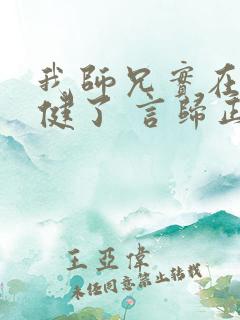 我師兄實在
健了 言歸正
王亞偉
未經同意禁止轉載